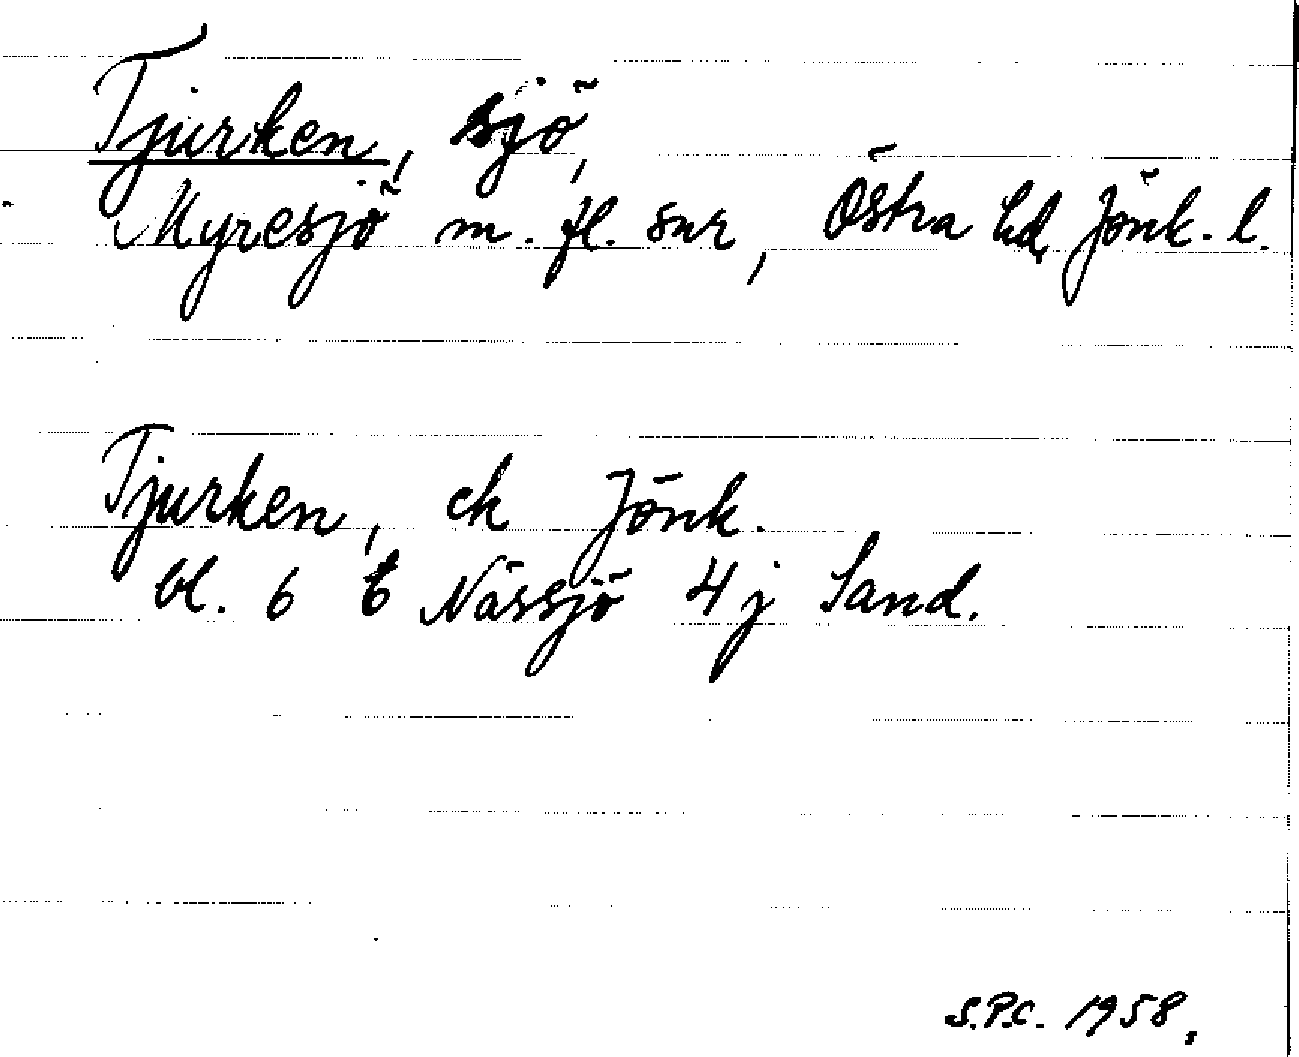 Tjurken, sjö,
Myresjö m. fl. snr, Östra hd Jönk. l.
Tjurken, ek Jönk.
bl. 6 t Nässjö 4 j Sand.
S.P.C. 1958.